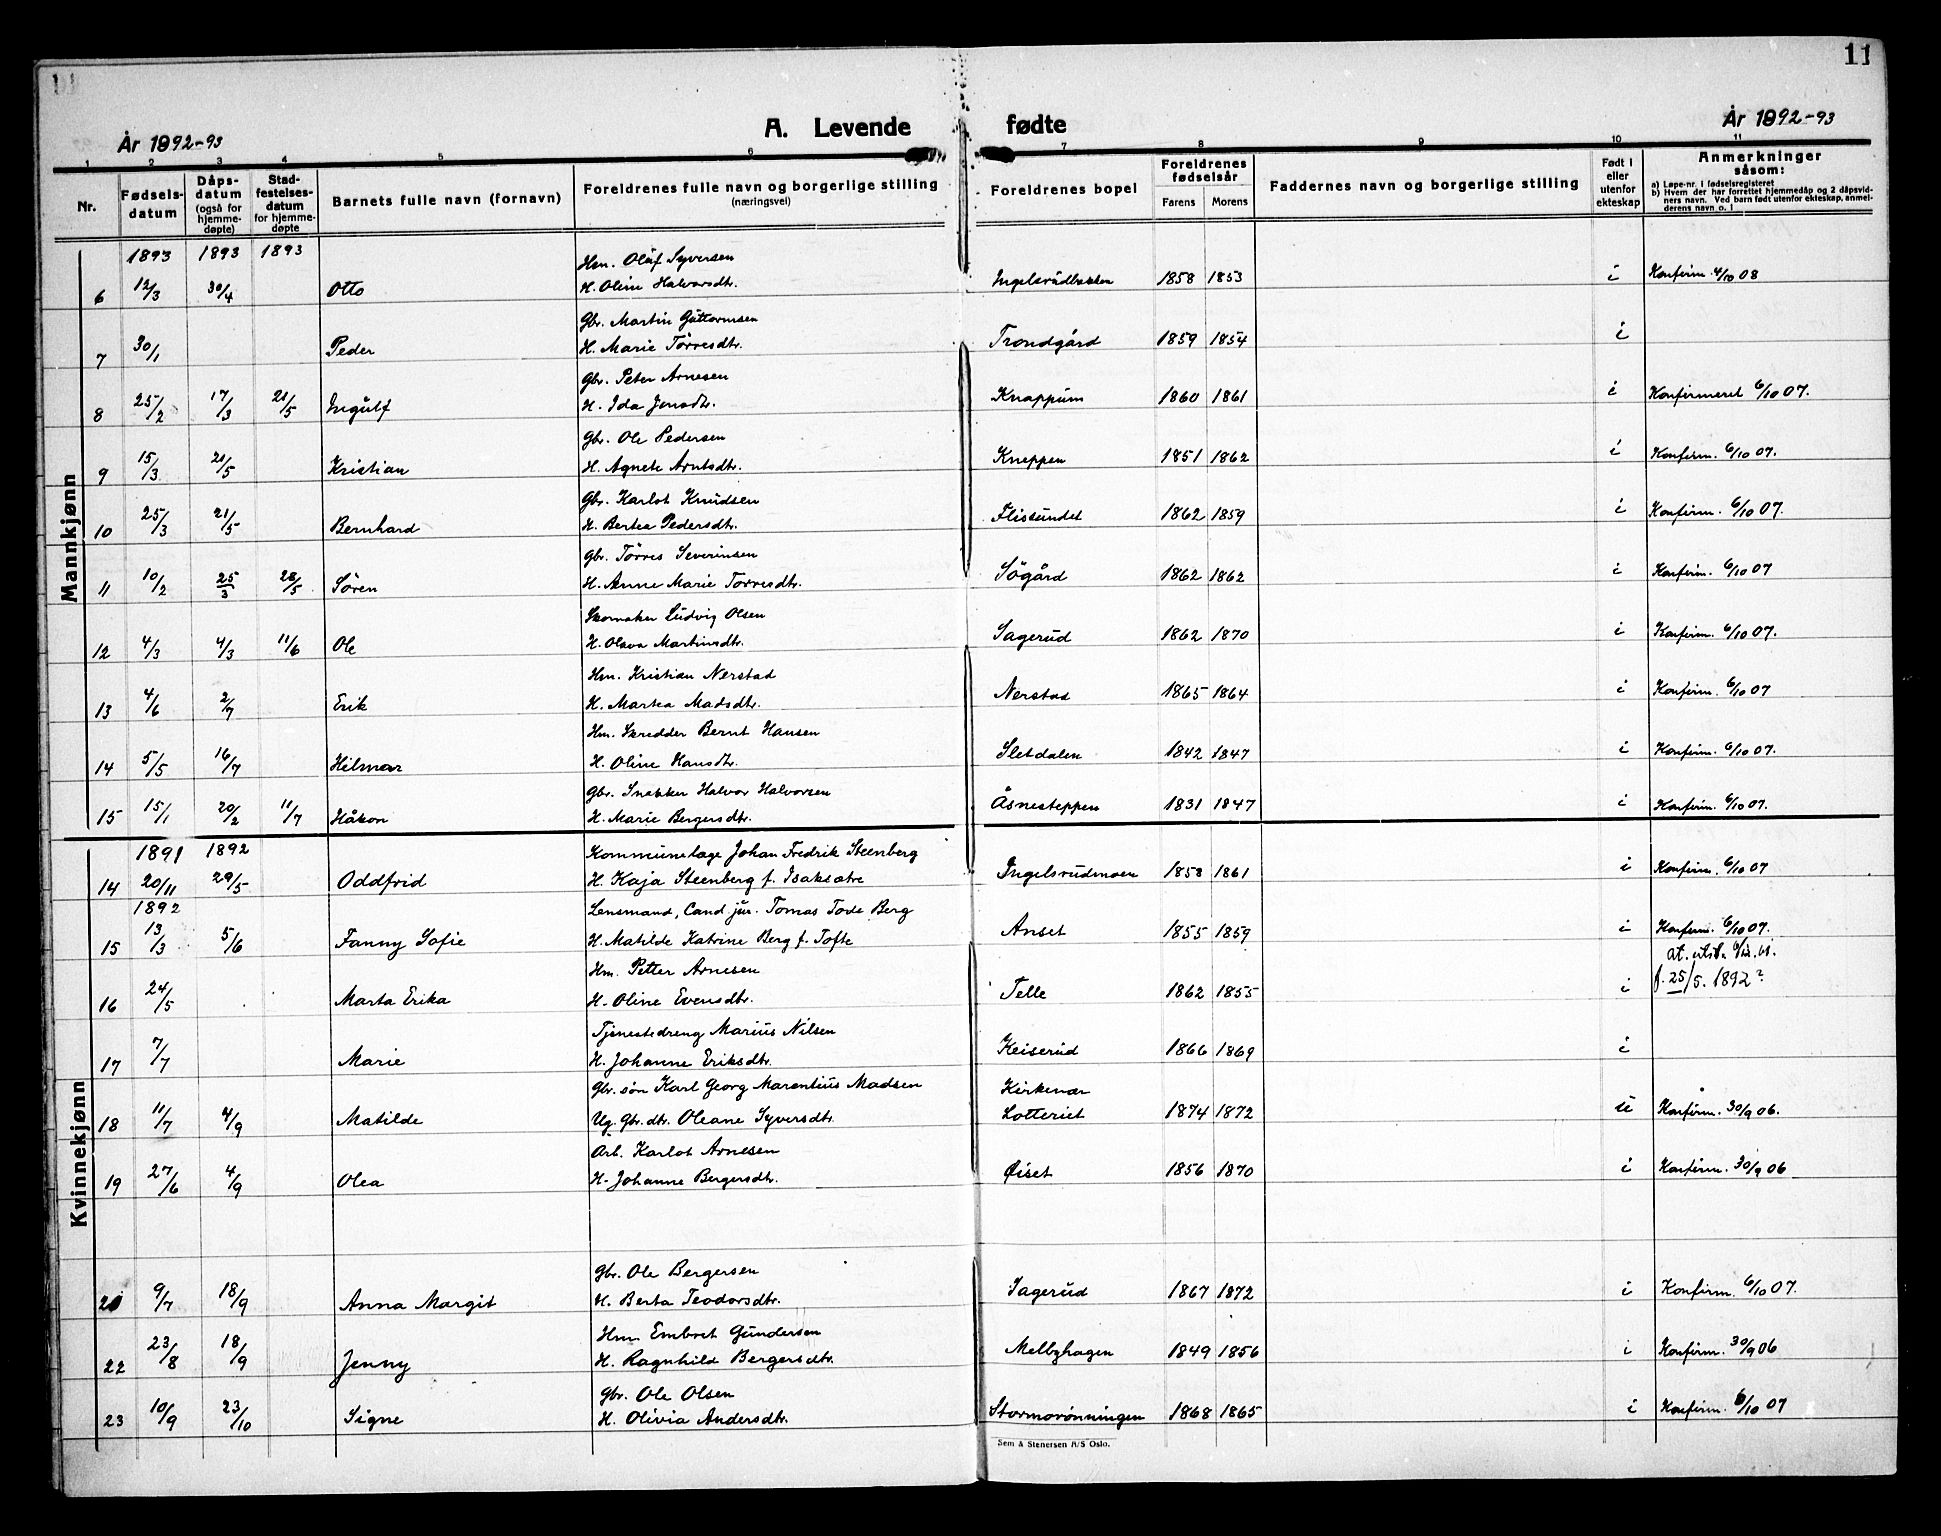 11
A. Levende fødte
År 1892-93
År 1892-93
1 2 3 4 5 6 7 8 9 10 11
Nr. | Fødsels-datum | Dåps-datum (også for hjemme-døpte) | Stad-festelses-datum for hjemme-døpte | Barnets fulle navn (fornavn) | Foreldrenes fulle navn og borgerlige stilling (næringsvei) | Foreldrenes bopel | Foreldrenes fødselsår Farens Morens | Faddernes navn og borgerlige stilling | Født i eller utenfor ekteskap | Anmerkninger såsom: a) Løpe-nr. i fødselsregisteret b) Hvem der har forrettet hjemmedåp og 2 dåpsvidners navn. Ved barn født utenfor ekteskap, anmelderens navn o. l
Mannkjønn
1893 1893 1893
Hm. Oluf Syversen
6 12/3 30/4 Otto H. Oline Halvorsdtr. Ingelsrudbakken 1858 1853 i Konfirm. 4/10 08
Gbr. Martin Guttormsen
7 30/1 Peder H. Marie Törresdtr. Trondgård 1859 1854 i
Gbr. Peter Arnesen
8 25/2 17/3 21/5 Ingulf H. Ida Jensdtr. Knappum 1860 1861 i Konfirmeret 6/10 07.
Gbr. Ole Pedersen
9 15/3 21/5 Kristian H. Agnete Arntsdtr. Kneppen 1851 1862 i Konfirm. 6/10 07.
Gbr. Karlot Knudsen
10 25/3 21/5 Bernhard H. Bertea Pedersdtr. Flissundet 1862 1859 i Konfirm. 6/10 07.
Gbr. Törres Severinsen
11 10/2 25/3 28/5 Sören H. Anne Marie Törresdtr. Sögård 1862 1862 i Konfirm. 6/10 07
Skomaker Ludvig Olsen
12 4/3 4/3 11/6 Ole H. Olava Martinsdtr. Sagerud 1862 1870 i Konfirm. 6/10 07.
Hm. Kristian Nerstad
13 4/6 2/7 Erik H. Martea Madsdtr. Nerstad 1865 1864 i Konfirm. 6/10 07
Hm. Skredder Bernt Hansen
14 5/5 16/7 Hilmar H. Oline Hansdtr. Sletdalen 1842 1847 i Konfirm. 6/10 07.
Gbr. Snekker Halvor Halvorsen
15 15/1 20/2 11/7 Håkon H. Marie Bergersdtr. Åsnesteppen 1831 1847 i Konfirm. 6/10 07.
Kvinnekjønn
1891 1892 Kommunelæge Johan Fredrik Steenberg
14 20/11 29/5 Oddfrid H. Kaja Steenberg f. Isaksætre Ingelsrudmoen 1858 1861 i Konfirm. 6/10 07
1892 Lensmand, Cand jur. Tomas Tode Berg
15 13/3 5/6 Fanny Sofie H. Matilde Katrine Berg f. Tofte Arset 1855 1859 i Konfirm. 6/10 07.
Hm. Petter Arnesen at. utst.
16 24/5 Marta Erika H. Oline Evensdtr. Telle 1862 1855 i f. 25/5. 1892?
Tjenestedreng Marius Nilsen
17 7/7 Marie H. Johanne Eriksdtr. Keiserud 1866 1869 i
Gbr. sön Karl Georg Marentius Madsen Kirkenær
18 11/7 4/9 Matilde Ug. Gbr. dtr. Oleane Syversdtr. Lotteriet 1874 1872 u Konfirm. 30/9 06.
Arb. Karlot Arnesen
19 27/6 4/9 Olea H. Johanne Bergersdtr. Øiset 1856 1870 i Konfirm. 30/9 06
Gbr. Ole Bergersen
21 9/7 18/9 Anna Margit H. Berta Teodorsdtr. Sagerud 1867 1872 i Konfirm. 6/10 07.
Hm. Embret Gundersen
22 23/8 18/9 Jenny H. Ragnhild Bergersdtr. Melbyhagen 1849 1856 i Konfirm. 30/9 06
Gbr. Ole Olsen
23 10/9 23/10 Signe H. Olivia Andersdtr. Stormorönningen 1868 1865 i Konfirm. 6/10 07
Sem & Stenersen A/S Oslo.